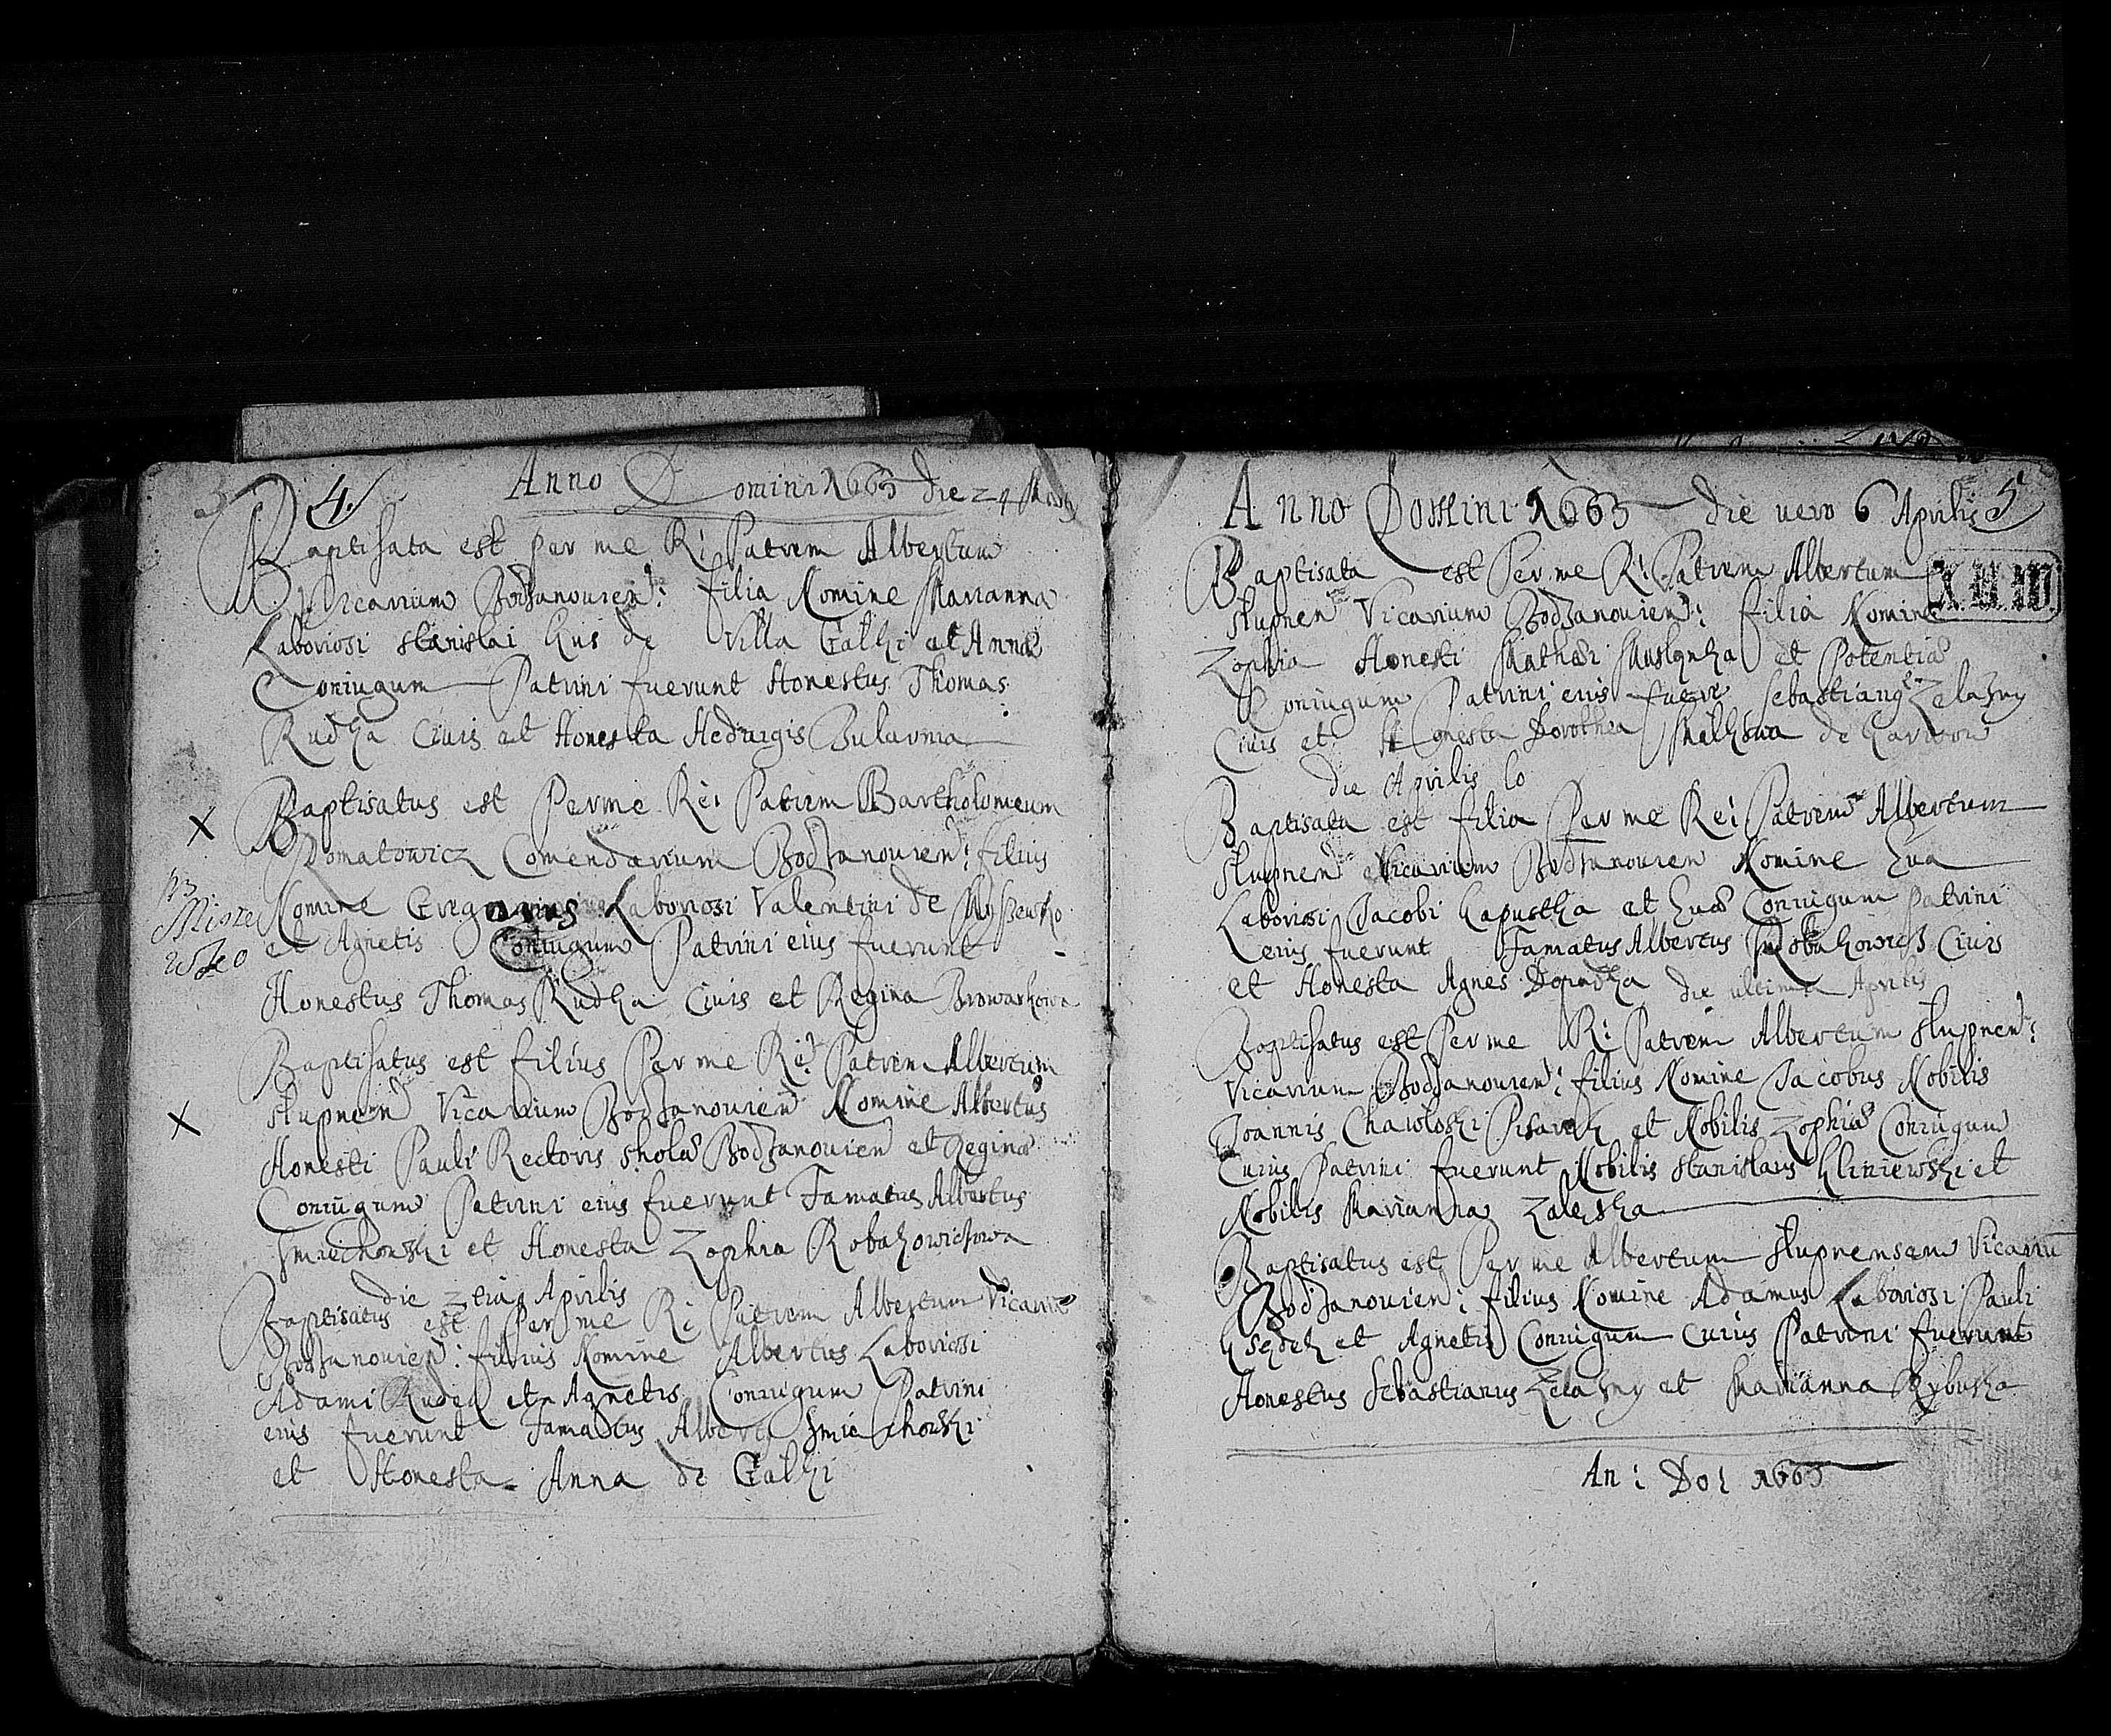 4.
Anno Domini 1663 die 24
Baptisata est per me R: Patrem Albertum
Vicarium Bodzanovien: filia Nomine Marianna
Laboriosi Stanislai Kus de Villa Galki et Anna
Coniugum Patrini fuerunt Honestus Thomas
Rudka Civis et Honesta Hedvigis
Baptisatus est Per me Re: Patrem Bartholomeum
Domatowicz Comendarium Bodzanovien: filius
Nomine Gregorius Laboriosi Valentini de
et Agnetis Coniugum Patrini eius fuerunt
Honestus Thomas Rudka Civis et Regina Browarkowa
Baptisatus est filius Per me Re: Patrem Albertum
Slupnen Vicarium Bodzanovien Nomine Albertus
Honesti Pauli Rectoris Shola Bodzanovien et Regina
Coniugum Patrini eius fuerunt Famatus Albertus
Smiechowski et Honesta Zophia Robakowiczowa
die Aprilis
Baptisatus est Per me R: Patrem Albertum Vicariu
Bodzanovien: filius Nomine Albertus Laboriosi
Adami et Agnetis Coniugum Patrini
eius fuerunt Famatus Albertus Smiechowski
et Honesta Anna de Galki
Anno Domini 1663 die vero 6 Aprilis 5
Baptisata est Per me R: Patrem Albertum
Slupnen Vicarium Bodzanovien: filia Nomine
Zophia Honesti Mathei et Potentia
Coniugum Patrini eius fuer Sebastianus Zelazny
Civis et Honesta Dorothea de
die Aprilis
Baptisata est filia Per me Re: Patrem Albertum
Slupnen Vicarium Bodzanovien Nomine Eva
Laboriosi Jacobi Kapustka et Eva Coniugum Patrini
eius fuerunt Famatus Albertus Robakowicz Civis
et Honesta Agnes die ultima Aprilis
Baptisatus est Per me R: Patrem Albertum Slupnen:
Vicarium Bodzanovien: filius Nomine Jacobus Nobilis
Joannis et Nobilis Zophia Coniugum
Cuius Patrini fuerunt Nobilis Stanislaus Kliniewski et
Nobilis Marianna Zaleska
Baptisatus est Per me Albertum Slupnensem Vicariu
Bodzanovien: filius Nomine Adamus Laboriosi Pauli
et Agnetis Coniugum Cuius Patrini fuerunt
Honestus Sebastianus Zelazny et Marianna Rybuska
An: Do: 1663